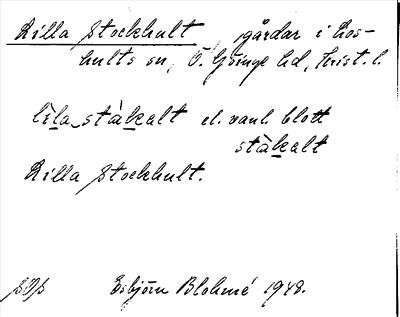 Lilla Stockhult, gårdar i Los-
hults sn, Ö. Göinge hd, Krist. l.
lìla stàkalt el. vanl. blott
stàkalt
Lilla Stockhult.
Esbjörn Blohmé 1948.